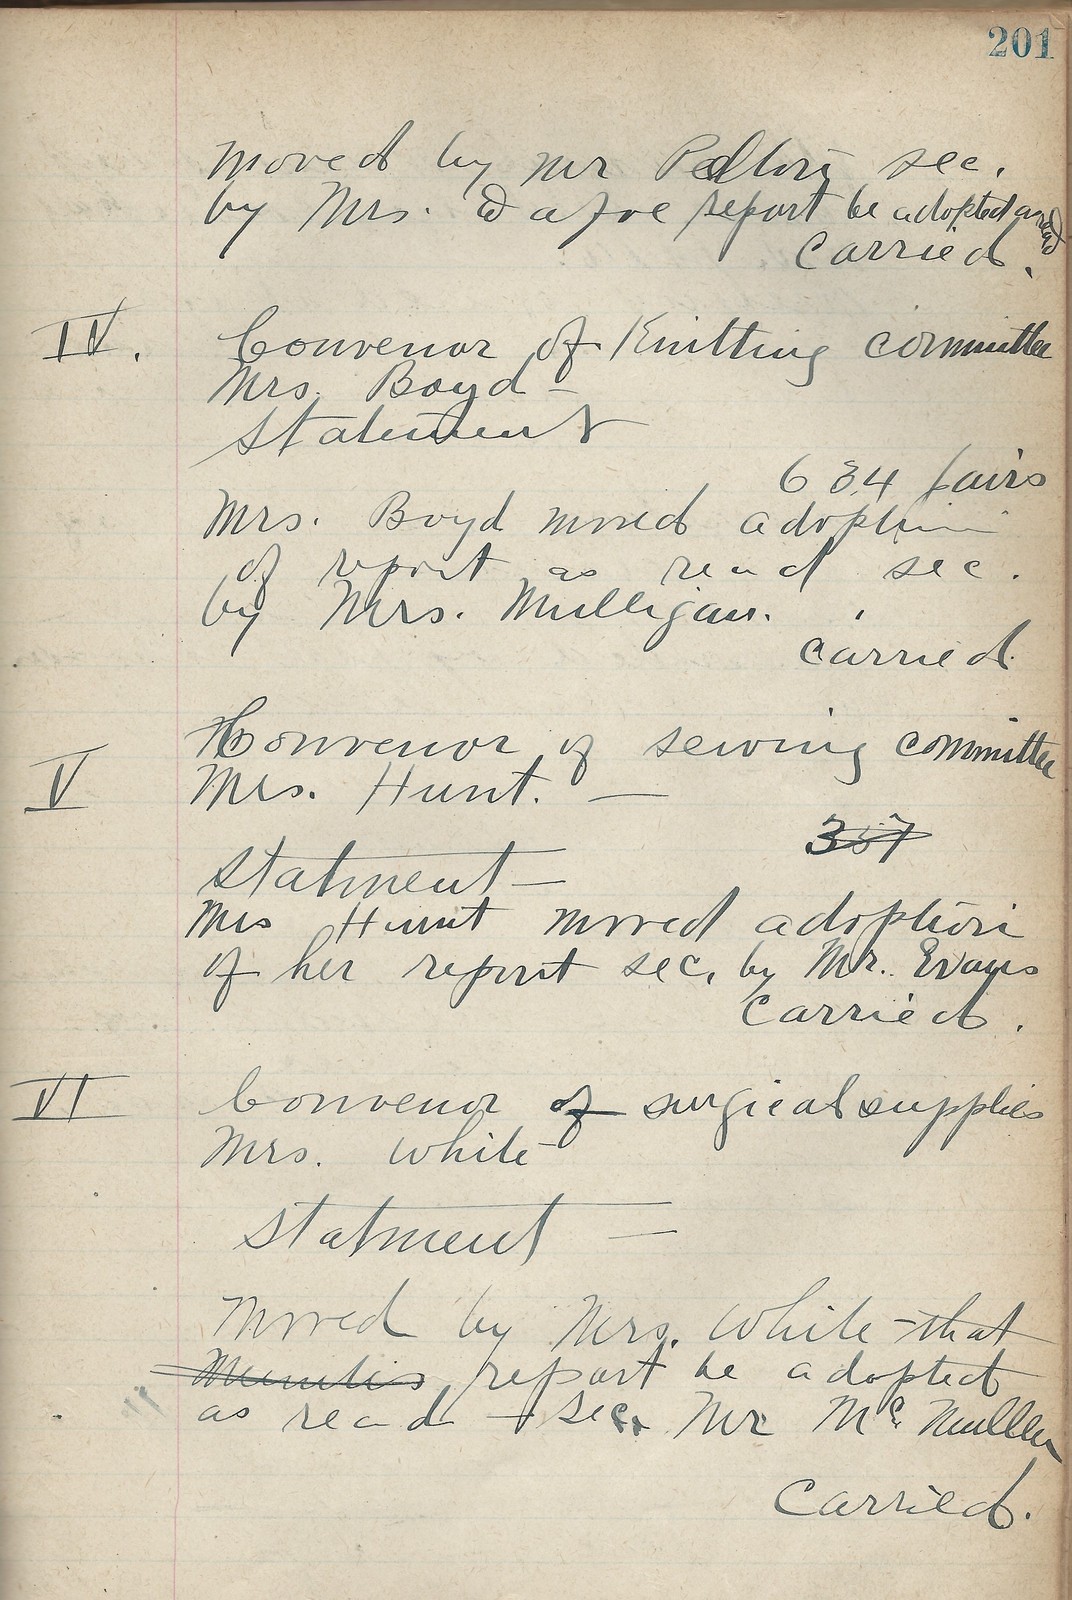 201
moved by mr sec.
by Mrs. Dafoe report be adopted and
carried.
IV. Convenor of Knitting committee
Mrs. Boyd -
Statement
634 pairs
Mrs. Boyd moved adoption
of report as read sec.
by Mrs. Mulligan.
carried.
V Convenor of sewing committee
Mrs. Hunt. —
357
Statment —
Mrs Hunt moved adoption
of her report sec. by Mr. Evans
Carried.
VI Convenor of surgical supplies
Mrs. White
Statment —
Moved by Mrs. White - that
Minutes report be adopted
as read - sec. Mr McMullen
Carried.